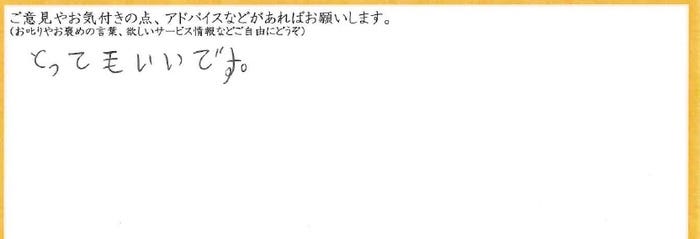 ご意見やお気付きの点、アドバイスなどがあればお願いします。
(お叱りやお褒めの言葉、欲しいサービス情報などご自由にどうぞ)
とってもいいです。